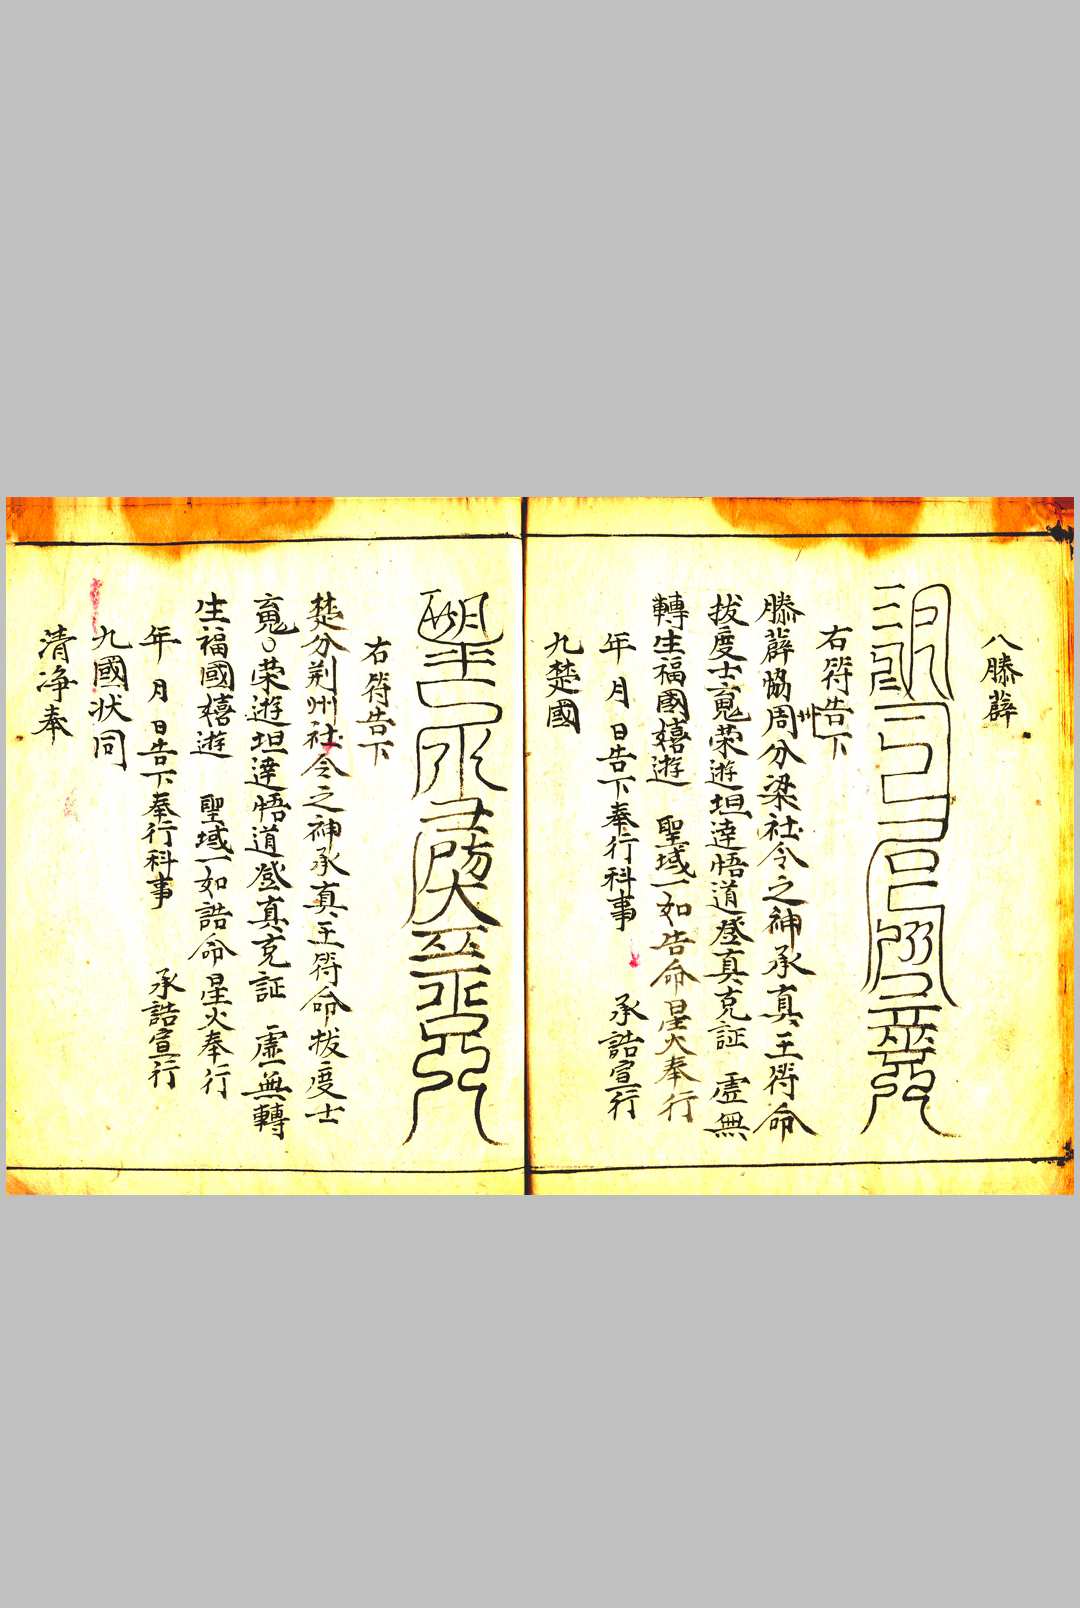 八滕薛
右符告下
滕薛恊周分梁州社令之神承真王符命
拔度士䰟荣遊坦達悟道登真克証　虛無
轉生福國嬉遊　聖域一如告命星火奉行
年　月　日告下奉行科事　承誥宣行
九楚國
右符告下
楚分荆州社令之神承真王符命拔度士
䰟荣遊坦達悟道登真克証　虛無轉
生福國嬉遊　聖域一如誥命星火奉行
年　月　日告下奉行科事　承誥宣行
九國状同
清净奉